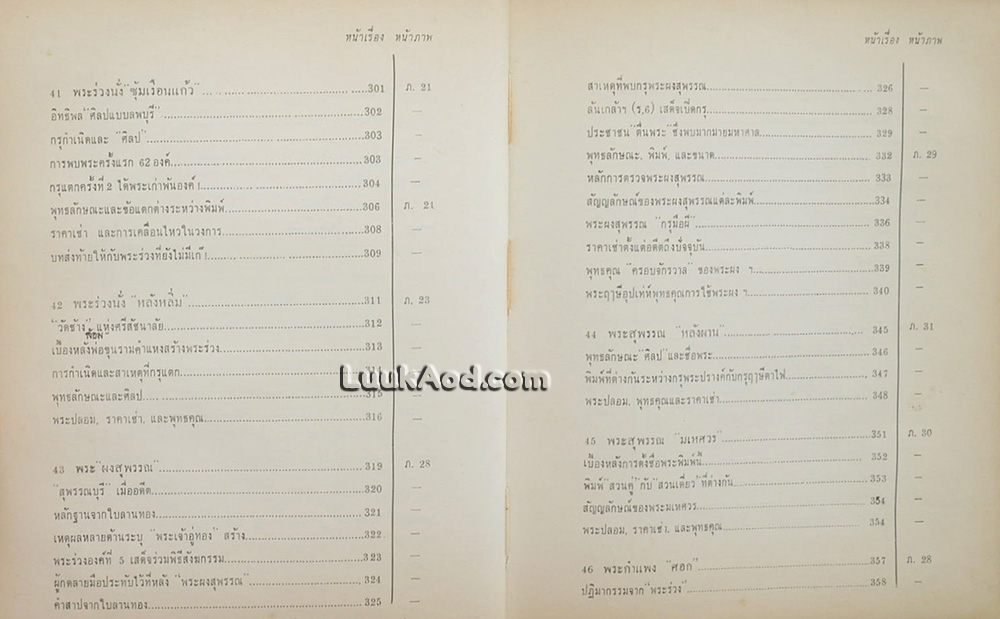 หน้าเรื่อง หน้าภาพ
41 พระร่วงนั่ง "ซุ้มเรือนแก้ว" ....301 ภ. 21
อิทธิพล "ศิลปแบบลพบุรี" ....302 —
กรุกำเนิดและ "ศิลป" ....303 —
การพบพระครั้งแรก 62 องค์....303 —
กรุแตกครั้งที่ 2 ได้พระเก่าพันองค์ !....304 —
พุทธลักษณะและข้อแตกต่างระหว่างพิมพ์....306 ภ. 21
ราคาเช่า และการเคลื่อนไหวในวงการ....308 —
บทส่งท้ายให้กับพระร่วงที่ยังไม่มีเก๊ !....309 —
42 พระร่วงนั่ง "หลังหลิ่ม"....311 ภ. 23
"วัดช้าง" แห่งศรีสัชนาลัย....312 —
ล้อม
เบื้องหลังพ่อขุนรามคำแหงสร้างพระร่วง....313 —
การกำเนิดและสาเหตุที่กรุแตก....
พุทธลักษณะและศิลป....315 —
พระปลอม, ราคาเช่า, และพุทธคุณ....316 —
43 พระ "ผงสุพรรณ"....319 ภ. 28
"สุพรรณบุรี" เมื่ออดีต....320 —
หลักฐานจากใบลานทอง....321 —
เหตุผลหลายด้านระบุ "พระเจ้าอู่ทอง" สร้าง....322 —
พระร่วงองค์ที่ 5 เสด็จร่วมพิธีสังฆกรรม....323 —
ผู้กดลายมือประทับไว้ที่หลัง "พระผงสุพรรณ"....324 —
คำสาปจากใบลานทอง....325 —
LuukAod.com
หน้าเรื่อง หน้าภาพ
สาเหตุที่พบกรุพระผงสุพรรณ....326 —
ล้นเกล้าฯ (ร,6) เสด็จเปิดกรุ....328 —
ประชาชน "ตื่นพระ" ซึ่งพบมากมายมหาศาล....329 —
พุทธลักษณะ, พิมพ์, และขนาด....332 ภ. 29
หลักการตรวจพระผงสุพรรณ....333 —
สัญญลักษณ์ของพระผงสุพรรณแต่ละพิมพ์....334 —
พระผงสุพรรณ "กรุมือผี"....336 —
ราคาเช่าตั้งแต่อดีตถึงปัจจุบัน....338 —
พุทธคุณ "ครอบจักรวาล" ของพระผง ฯ....339 —
พระฤาษีอุปเท่ห์พุทธคุณการใช้พระผง ฯ....340 —
44 พระสุพรรณ "หลังผาน"....345 ภ. 31
พุทธลักษณะ "ศิลป" และชื่อพระ....346 —
พิมพ์ที่ต่างกันระหว่างกรุพระปรางค์กับกรุฤาษีตาไฟ....347 —
พระปลอม, พุทธคุณและราคาเช่า....348 —
45 พระสุพรรณ "มเหศวร"....351 ภ. 30
เบื้องหลังการตั้งชื่อพระพิมพ์นี้....352 —
พิมพ์ "สวนคู่" กับ "สวนเดี่ยว" ที่ต่างกัน....353 —
สัญญลักษณ์ของพระมเหศวร....354 —
พระปลอม, ราคาเช่า, และพุทธคุณ....354 —
46 พระกำแพง "ศอก"....357 ภ. 28
ปฏิมากรรมจาก "พระร่วง"....358 —